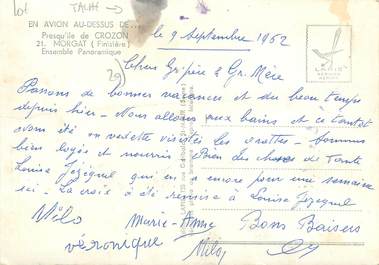 TALHF →
EN AVION AU-DESSUS DE...
Presqu'île de CROZON
21. MORGAT (Finistère)
Ensemble Panoramique
LAPIE
le 9 septembre 1962
29
Chers Gr Père & Gr. Mère
Passons de bonnes vacances et du beau temps
depuis hier - Nous allons aux bains et ce tantôt
avons été en vedette visiter les grottes - sommes
bien logés et nourris. Bien des choses de Tante
Louise Jézéquel qui en a encore pour une semaine
ici - La croix a été remise à Louise Jézéquel
Milo Marie-Anne Bons Baisers
véronique Milo